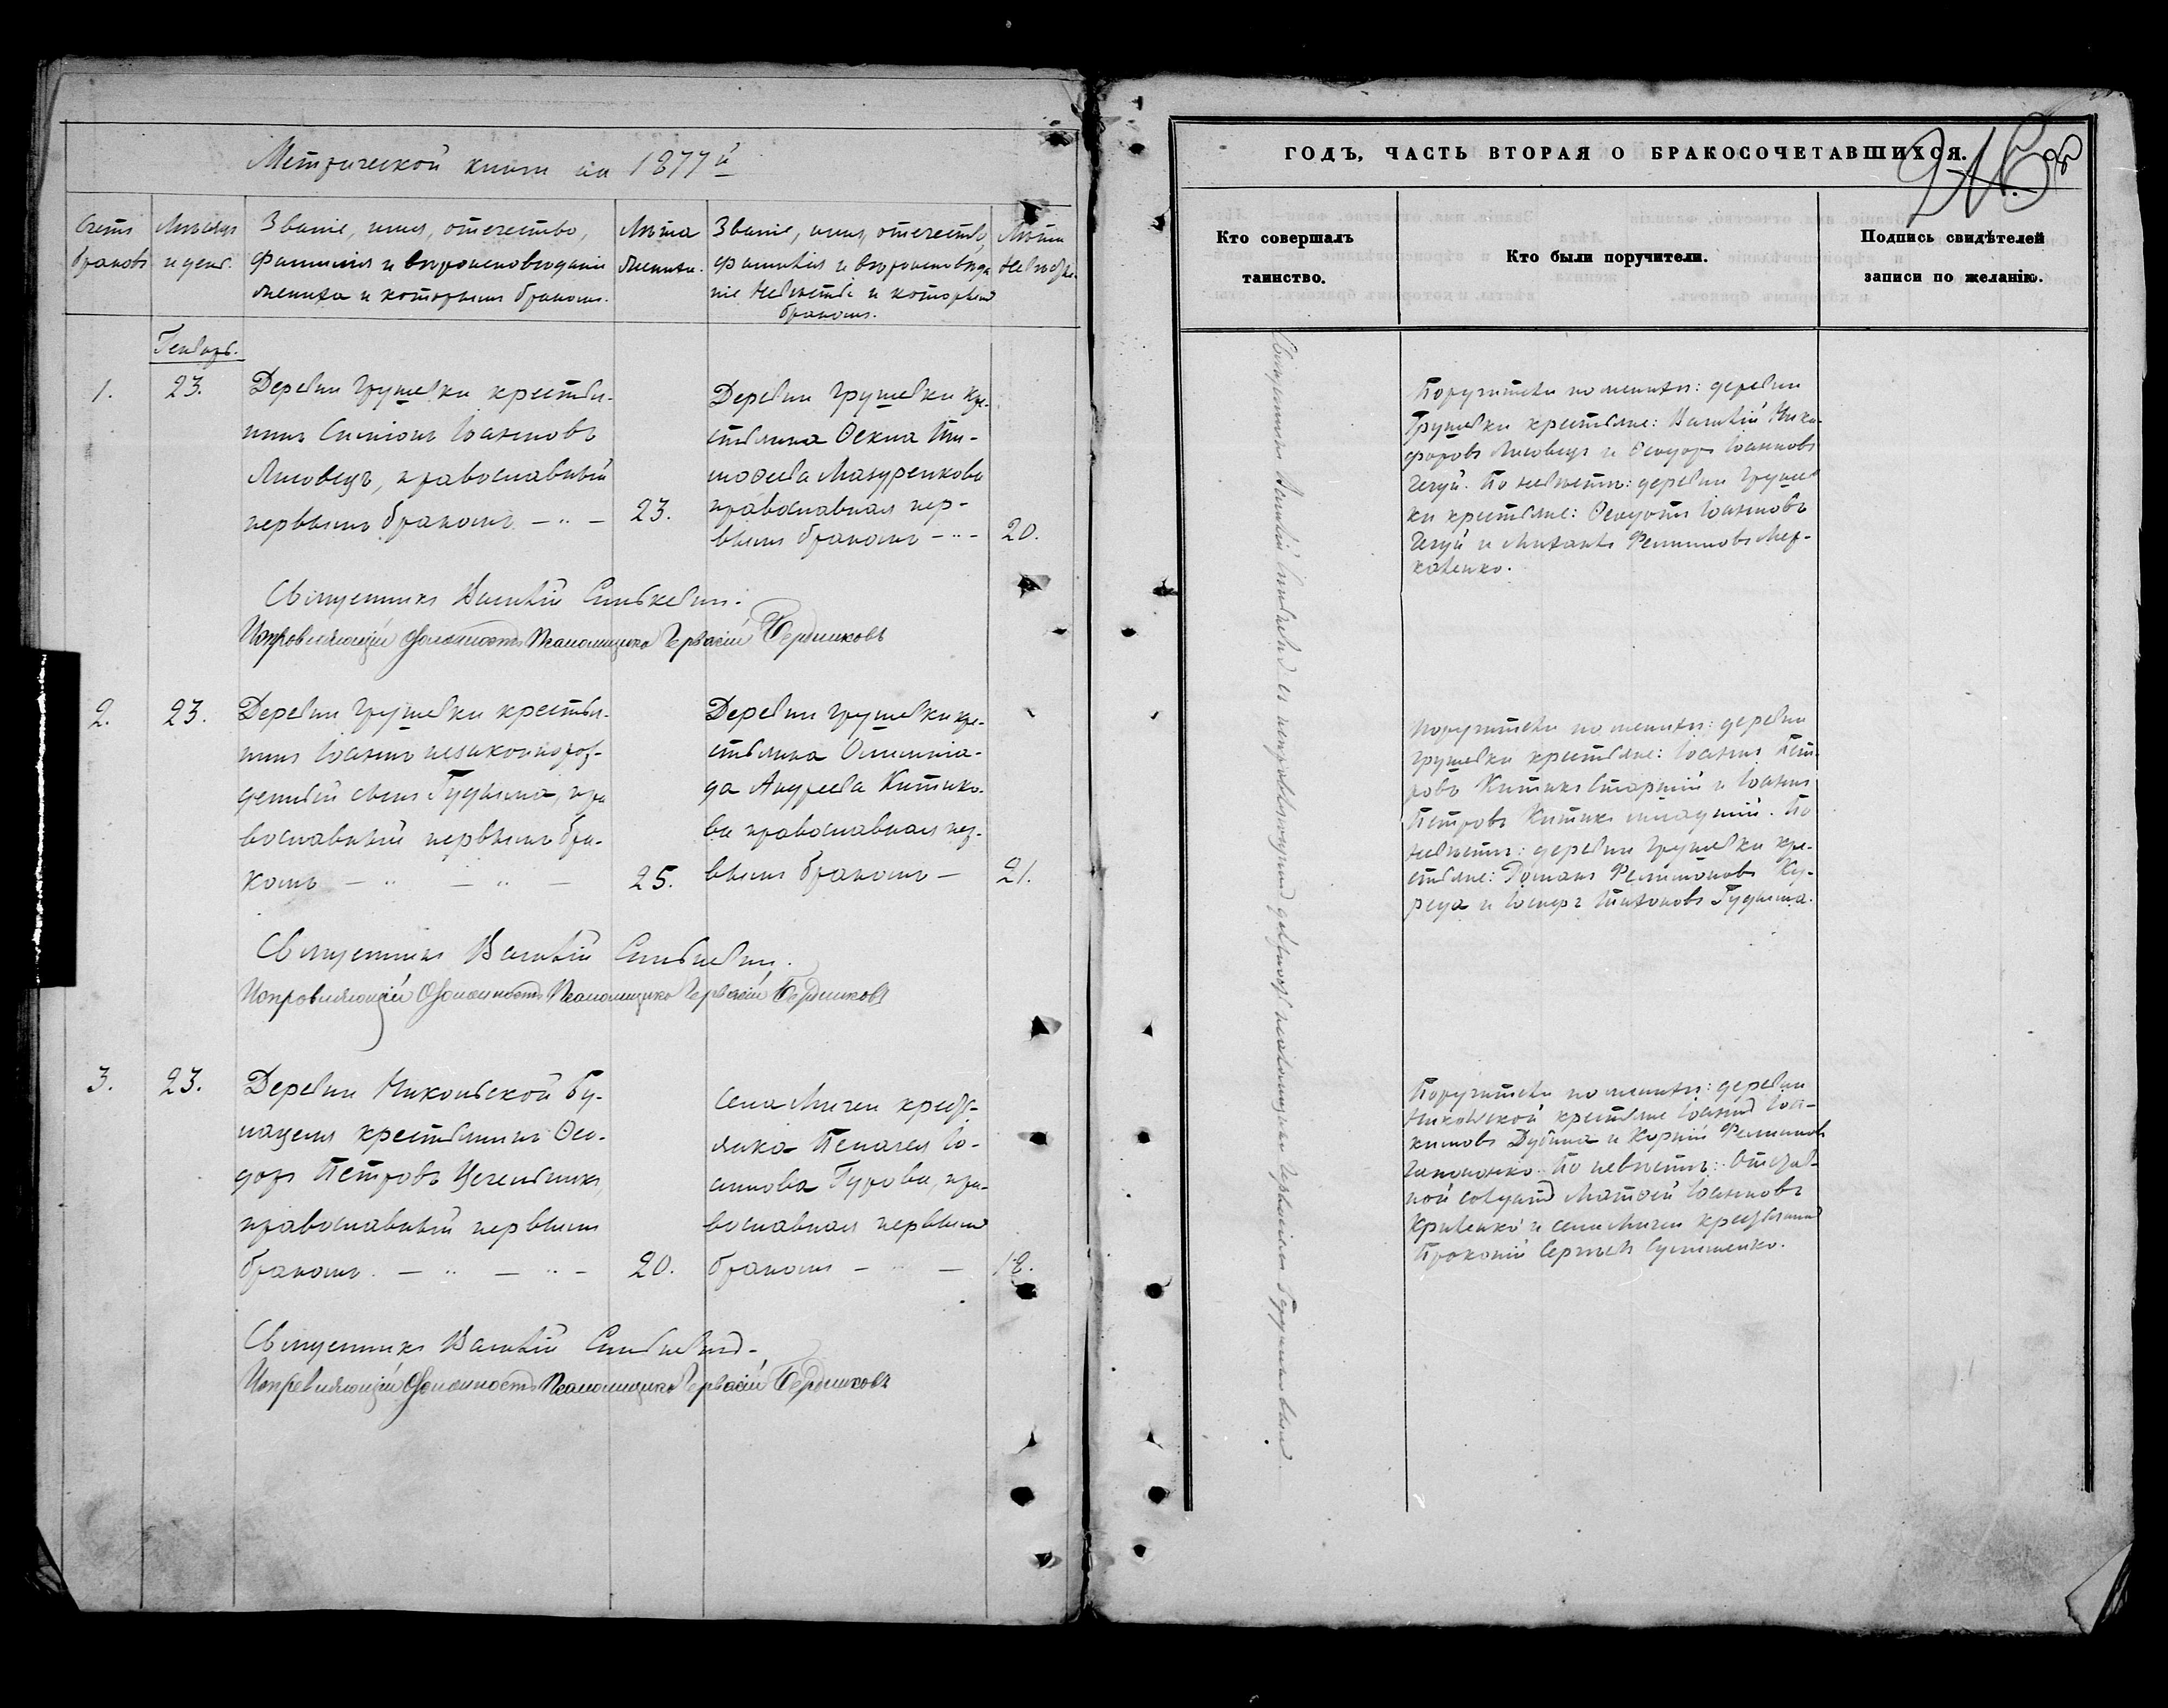 Метрической книги на 1877й
Счетъ браковъ
Мѣсяцъ и день.
Званіе, имя, отечество,
фамилія и вѣроисповѣданіе
жениха и которымъ бракомъ.
Лѣта
жениха.
Званіе, имя, отечество,
фамилія и вѣроисповѣда
ніе невѣсты и которымъ
бракомъ.
Лѣта
невѣсты.
Генварь.
1.
23.
Деревни Грушевки крестья-
нинъ Симеонъ Іоанновъ
Лисовецъ, православный
первымъ бракомъ – „ –
23.
Деревни Грушевки кре-
стьянка Ѳекла Ти-
моѳеева Мазуренкова
православная пер-
вымъ бракомъ – „ –
20.
Священникъ Василій
Исправляющій должность Псаломщика Гервасій Бердниковъ
2.
23.
Деревни Грушевки крестья-
нинъ Іоаннъ незаконнорож-
денный сынъ пра
вославный первымъ бра-
комъ – „ – „ –
25.
Деревни Грушевки кре-
стьянка Олимпіа-
да Андреева Китико-
ва православная пер-
вымъ бракомъ –
21.
Священникъ Василій
Исправляющій должность Псаломщика Гервасій Бердниковъ
3.
23.
Деревни Никольской Бу-
крестьянинъ Ѳео-
доръ Петровъ
православный первымъ
бракомъ. – „ – „ –
20.
Села крестья-
янка Пелагея Іо-
Гурова, пра-
вославная первымъ
бракомъ – „ –
18.
Священникъ Василій
Исправляющій должность Псаломщика Гервасій Бердниковъ
ГОДЪ, ЧАСТЬ ВТОРАЯ О БРАКОСОЧЕТАВШИХСЯ.
Кто совершалъ
таинство.
Кто были поручители.
Подпись свидѣтелей
записи по желанію.
Священникъ Василій съ исправляющимъ должность псаломщика Гервасіемъ Бердниковымъ.
Поручители по женихѣ: деревни
Грушевки крестьяне: Василій Ники-
форовъ Лисовецъ и Ѳеодоръ Іоанновъ
По невѣстѣ: деревни Грушев
ки крестьяне: Ѳеодотъ Іоанновъ
и Михаилъ Филипповъ Мер-
каленко.
Поручители по женихѣ: деревни
Грушевки крестьяне: Іоаннъ Пет-
ровъ Китикъ старшій и Іоаннъ
Петровъ Китикъ младшій. По
невѣстѣ: деревни Грушевки кре-
стьяне: Романъ
и Іосифъ Тихоновъ
Поручители по женихѣ: деревни
Никольской крестьяне Іоаннъ Іоа-
кимовъ Дубина и Корнилій Филипповъ
По невѣстѣ: Отстав-
ной солдатъ Матѳей Іоанновъ
Кривенко и села крестьянинъ
Прокопій Сергѣевъ